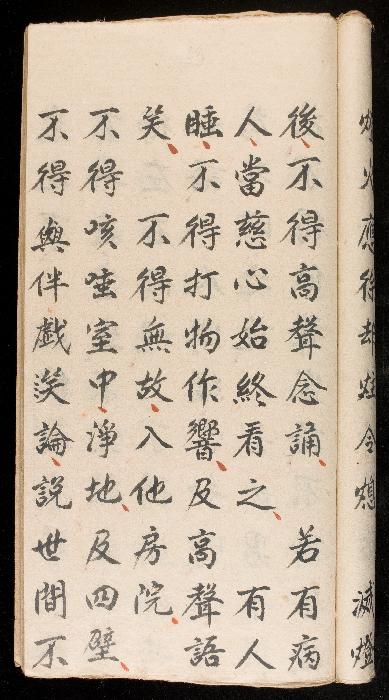 火應令熄 滅燈
後不得高聲念誦 若有病
人當慈心始終看之 有人
睡不得打物作響及高聲語
笑 不得無故入他房院
不得咳唾室中淨地及四壁
不得與伴戲笑論說世間不